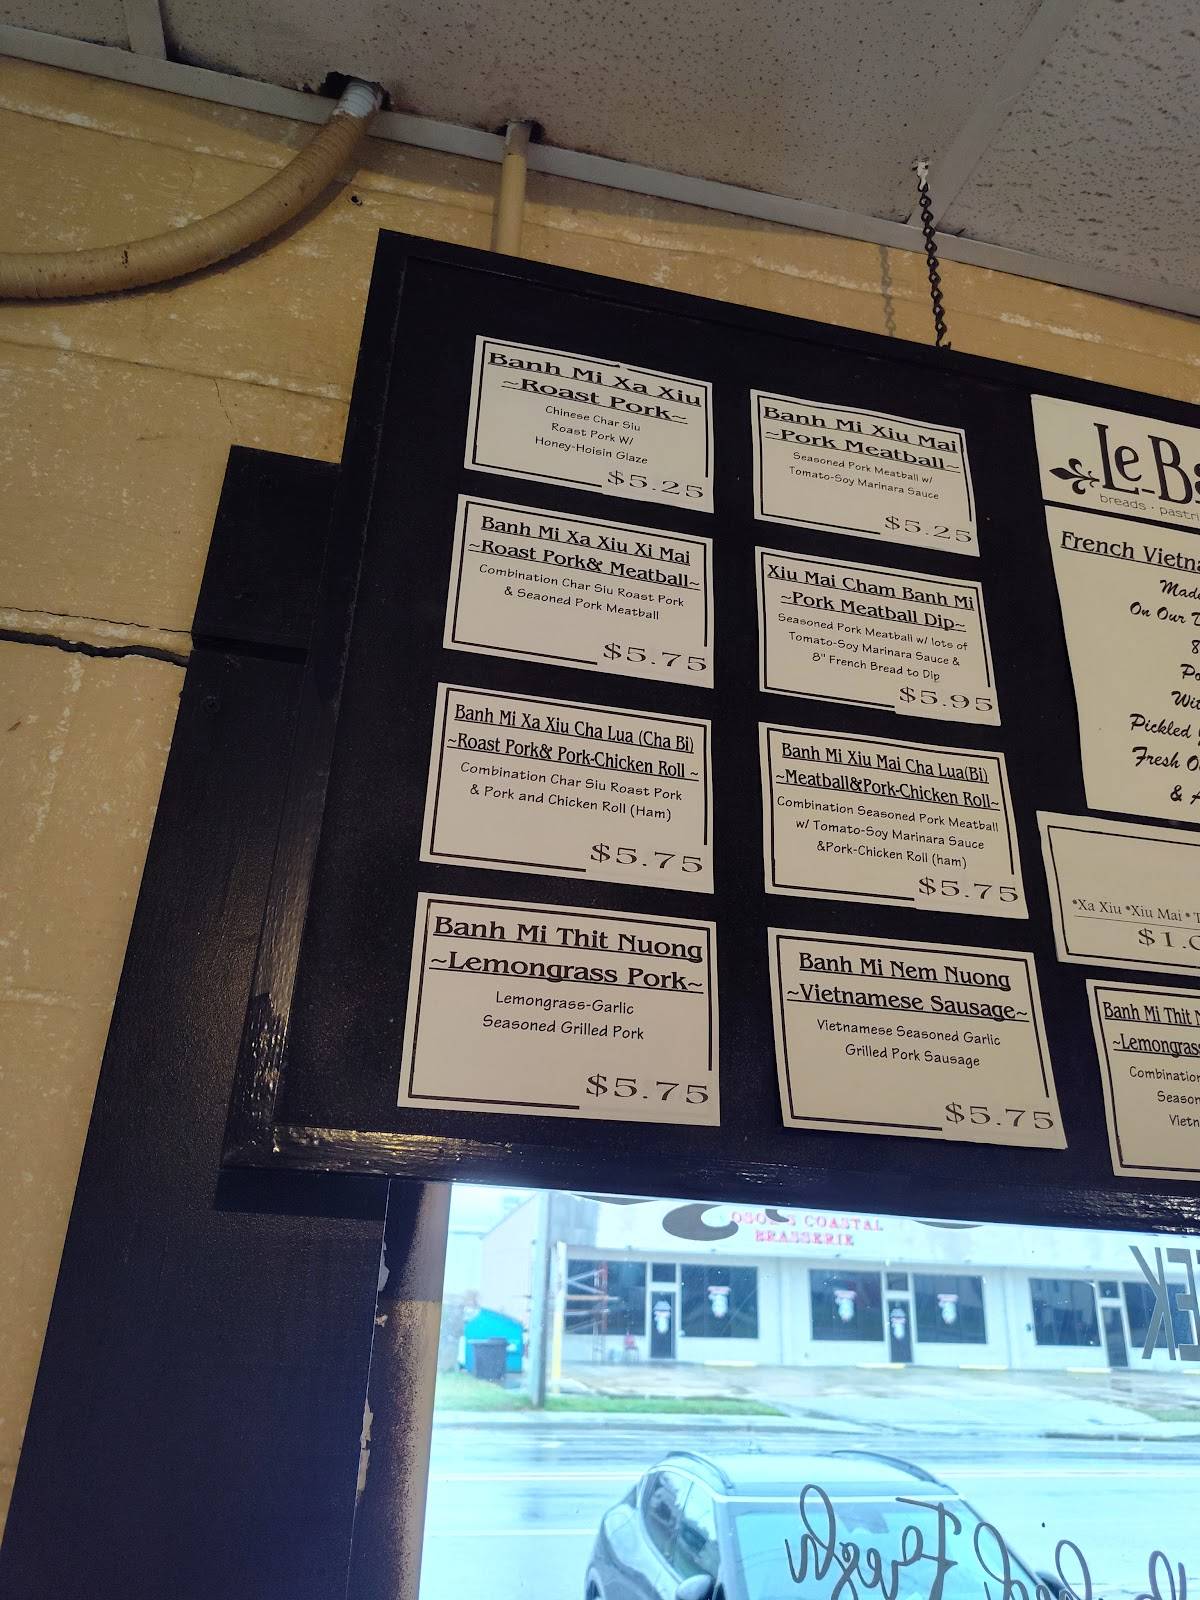 Banh Mi Xa Xiu
~Roast Pork~
Chinese Char Siu
Roast Pork W/
Honey-Hoisin Glaze
$5.25
Banh Mi Xa Xiu Xi Mai
~Roast Pork& Meatball~
Combination Char Siu Roast Pork
& Seaoned Pork Meatball
$5.75
Banh Mi Xa Xiu Cha Lua (Cha Bi)
~Roast Pork& Pork-Chicken Roll ~
Combination Char Siu Roast Pork
& Pork and Chicken Roll (Ham)
$5.75
Banh Mi Thit Nuong
~Lemongrass Pork~
Lemongrass-Garlic
Seasoned Grilled Pork
$5.75
Banh Mi Xiu Mai
~Pork Meatball~
Seasoned Pork Meatball w/
Tomato-Soy Marinara Sauce
$5.25
Xiu Mai Cham Banh Mi
~Pork Meatball Dip~
Seasoned Pork Meatball w/ lots of
Tomato-Soy Marinara Sauce &
8" French Bread to Dip
$5.95
Banh Mi Xiu Mai Cha Lua(Bi)
~Meatball&Pork-Chicken Roll~
Combination Seasoned Pork Meatball
w/ Tomato-Soy Marinara Sauce
&Pork-Chicken Roll (ham)
$5.75
Banh Mi Nem Nuong
~Vietnamese Sausage~
Vietnamese Seasoned Garlic
Grilled Pork Sausage
$5.75
Le-Ba
breads · pastri
French Vietna
Made
On Our
8
Po
Wit
Pickled
Fresh
&
*Xa Xiu *Xiu Mai *
$1.
Banh Mi Thit
~Lemongrass
Combination
Season
Vietn
COASTAL
BRASSERIE
Fresh